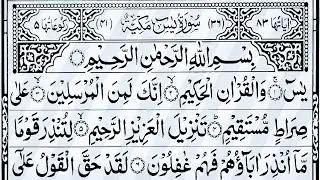 اٰیاتها ٨٣ (٣٦) سُوْرَةُ يٰسٓ مَكِّيَّةٌ (٤١) رُكُوْعَاتُهَا ٥
بِسْمِ اللهِ الرَّحْمٰنِ الرَّحِيْمِ ۝
يٰسٓ ۝ وَالْقُرْاٰنِ الْحَكِيْمِ ۝ اِنَّكَ لَمِنَ الْمُرْسَلِيْنَ ۝ عَلٰى
صِرَاطٍ مُّسْتَقِيْمٍ ۝ تَنْزِيْلَ الْعَزِيْزِ الرَّحِيْمِ ۝ لِتُنْذِرَ قَوْمًا
مَّاۤ اُنْذِرَ اٰبَآؤُهُمْ فَهُمْ غٰفِلُوْنَ ۝ لَقَدْ حَقَّ الْقَوْلُ عَلٰۤى